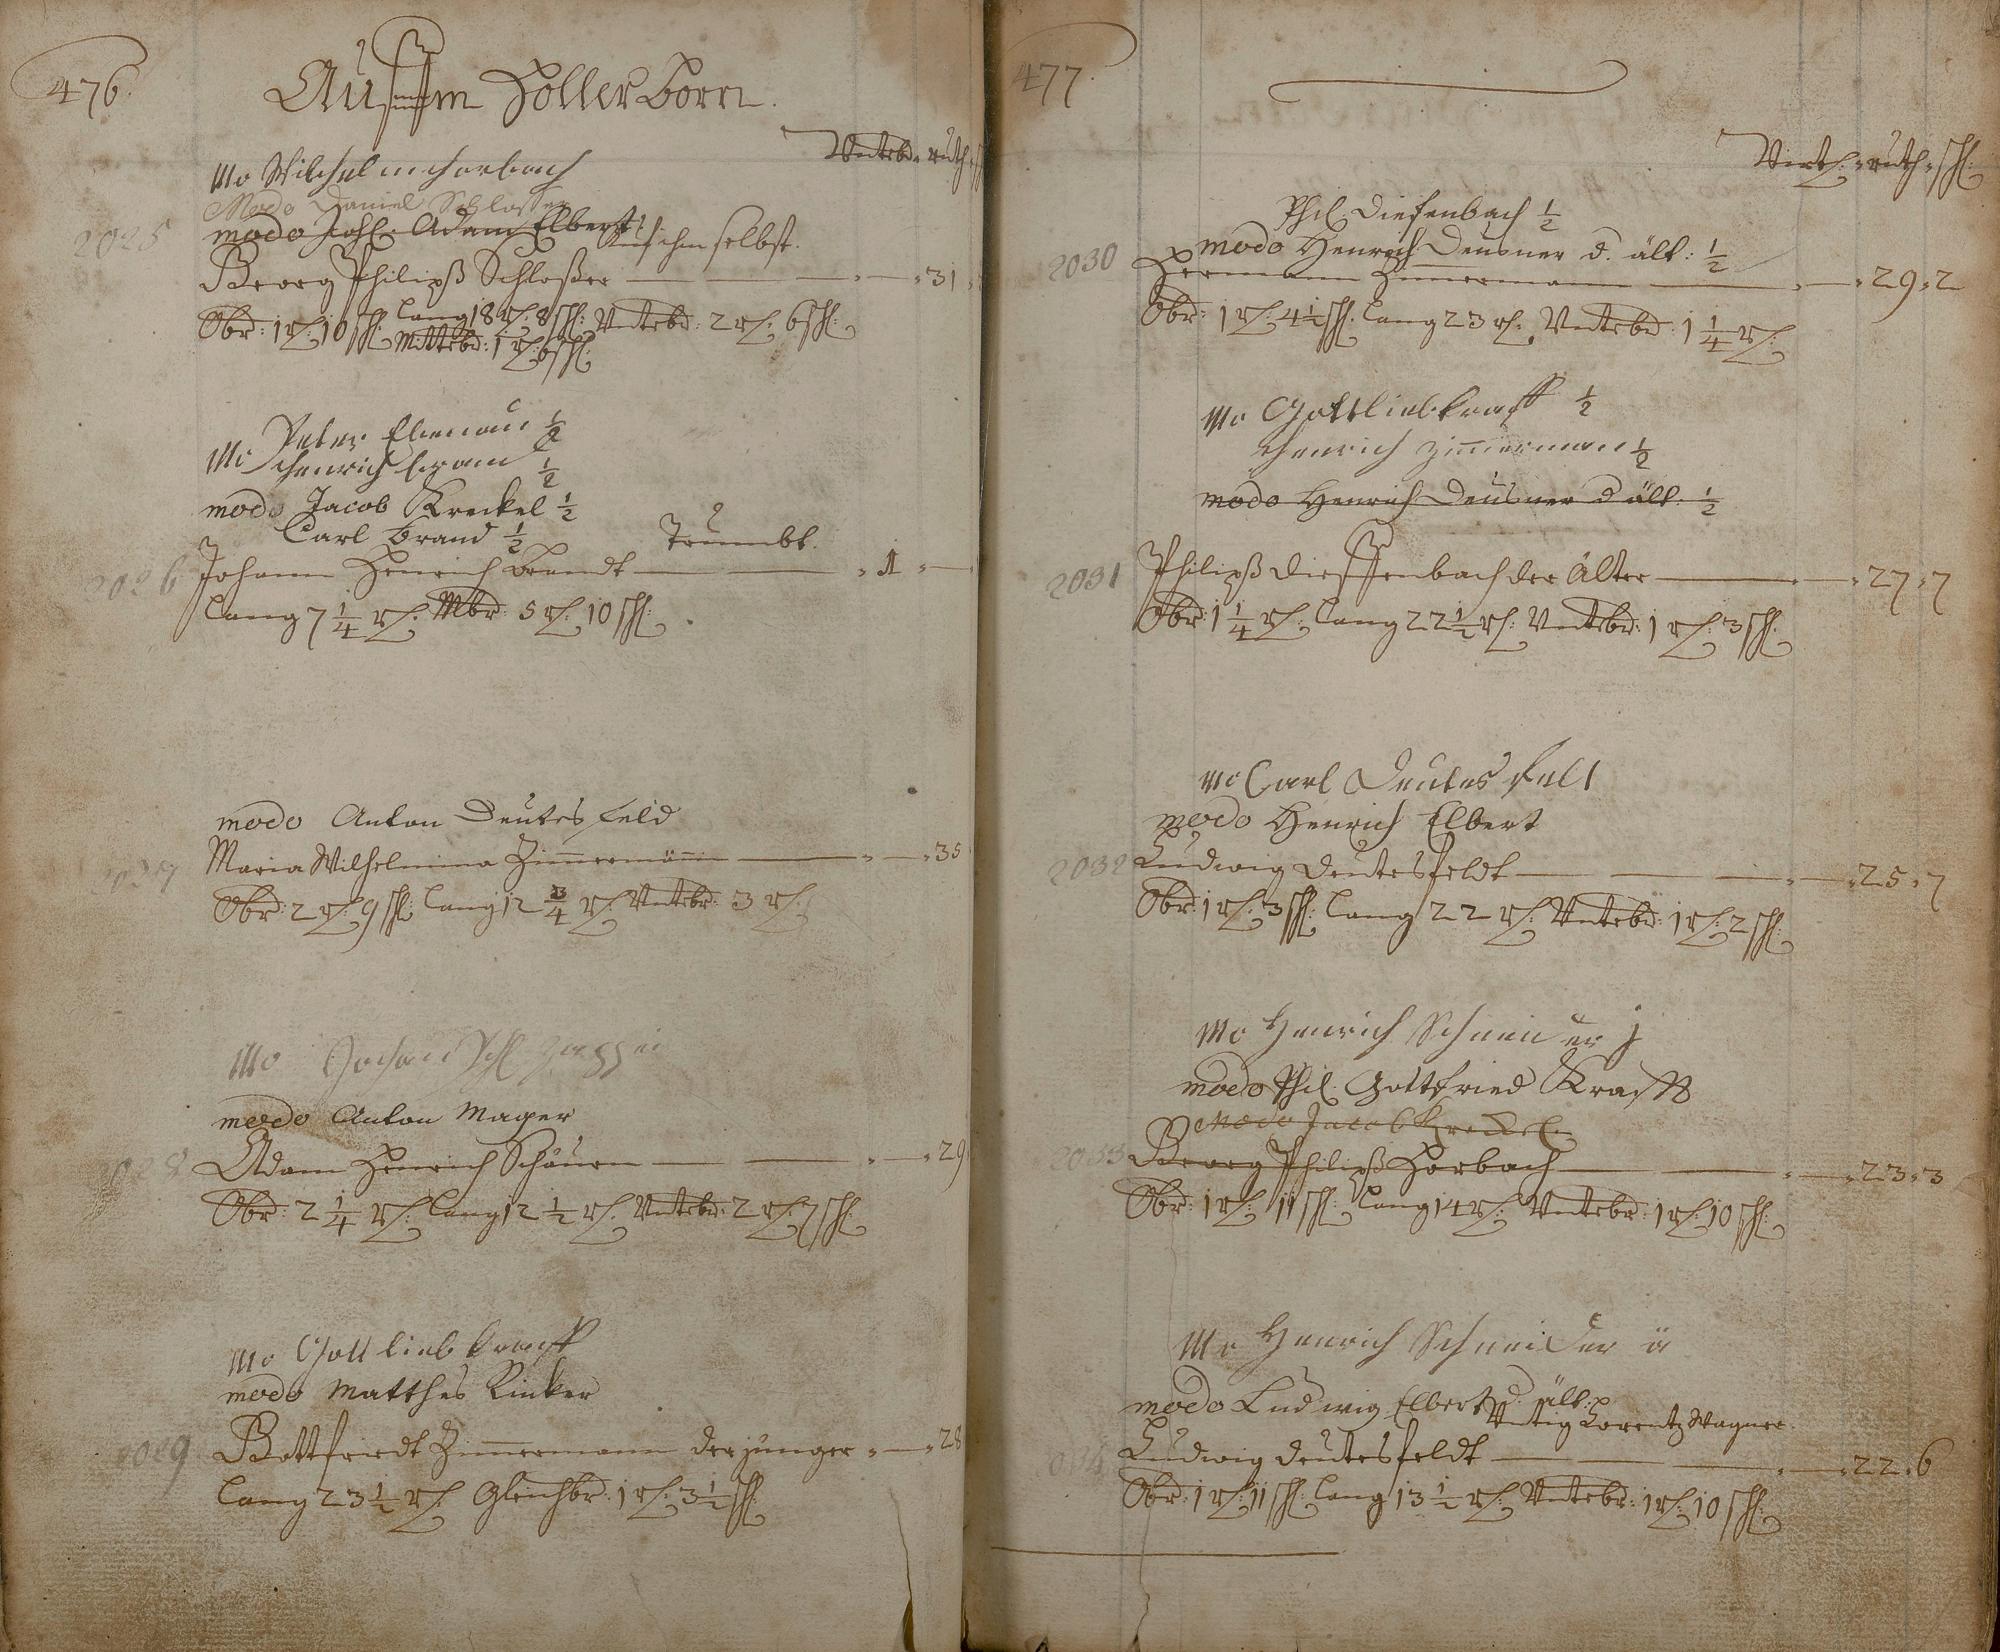 476.
Auffm Hollerborn.
Vntebr. ruth.
Mo Wilhelm Horbach
Modo Daniel Schlosser
modo Joh: Adam Elbert
auf ihm selbst.
2025
Georg Philipß Schloßer — 31
Obr: 1 r: 10 sch: Lang 18 r: 8 sch: Vntebr: 2 r: 6 sch:
Mittebr: 1 r: 6 sch:
Mo Peter Ebenau 1/2
Henrich brand 1/2
modo Jacob Kreckel 1/2
Carl Brand 1/2
Trumbt.
2026 Johann Henrich Brandt — 1 —
Lang 7 1/4 r: Mbr: 5 r: 10 sch:
modo Anton Deutesfeld
2027 Maria Wilhelmina Zimmermänin — 35
Obr: 2 r: 9 sch: Lang 12 3/4 r: Vntebr: 3 r:
Mo
modo Anton Mager
2028 Adam Henrich Schäuen — 29
Obr: 2 1/4 r: Lang 12 1/2 r: Vntebr: 2 r: 7 sch:
Mo Gottlieb Krafft
modo Matthes Rinker
2029 Gottfriedt Zimmermann der junger — 28
Lang 23 1/2 r: Gleichbr: 1 r: 3 1/2 sch:
477.
Viert: ruth: sch:
Phil. Diefenbach 1/2
modo Henrich Deusner d. ält: 1/2
2030 Hermann Zimmermann — 29 " 2
Obr: 1 r: 4 1/2 sch: Lang 23 r: Vntebr: 1 1/4 r:
Mo Gottlieb Krafft 1/2
Henrich Zimmerman 1/2
modo Henrich Deusner d ält. 1/2
2031 Philipß Dieffenbach der Älter — 27 " 7
Obr: 1 1/4 r: Lang 22 1/2 r: Vntebr: 1 r: 3 sch:
Mo Carl Deutesfelt
modo Henrich Elbert
2032 Ludwig Deutesfeldt — 25 " 7
Obr: 1 r: 3 sch: Lang 22 r: Vntebr: 1 r: 2 sch:
Mo Henrich Schneider j
modo Phil. Gottfried Krafft
Modo Jacob Kreckel
2033 Georg Philipß Horbach — 23 " 3
Obr: 1 r: 11 sch: Lang 14 r: Vntebr: 1 r: 10 sch:
Mo Henrich Schneider ä
modo Ludwig Elbert d. ält:
Lorentz Wagner.
Ludwig Deutesfeldt — 22 " 6
Obr: 1 r: 11 sch: Lang 13 1/2 r: Vntebr: 1 r: 10 sch: